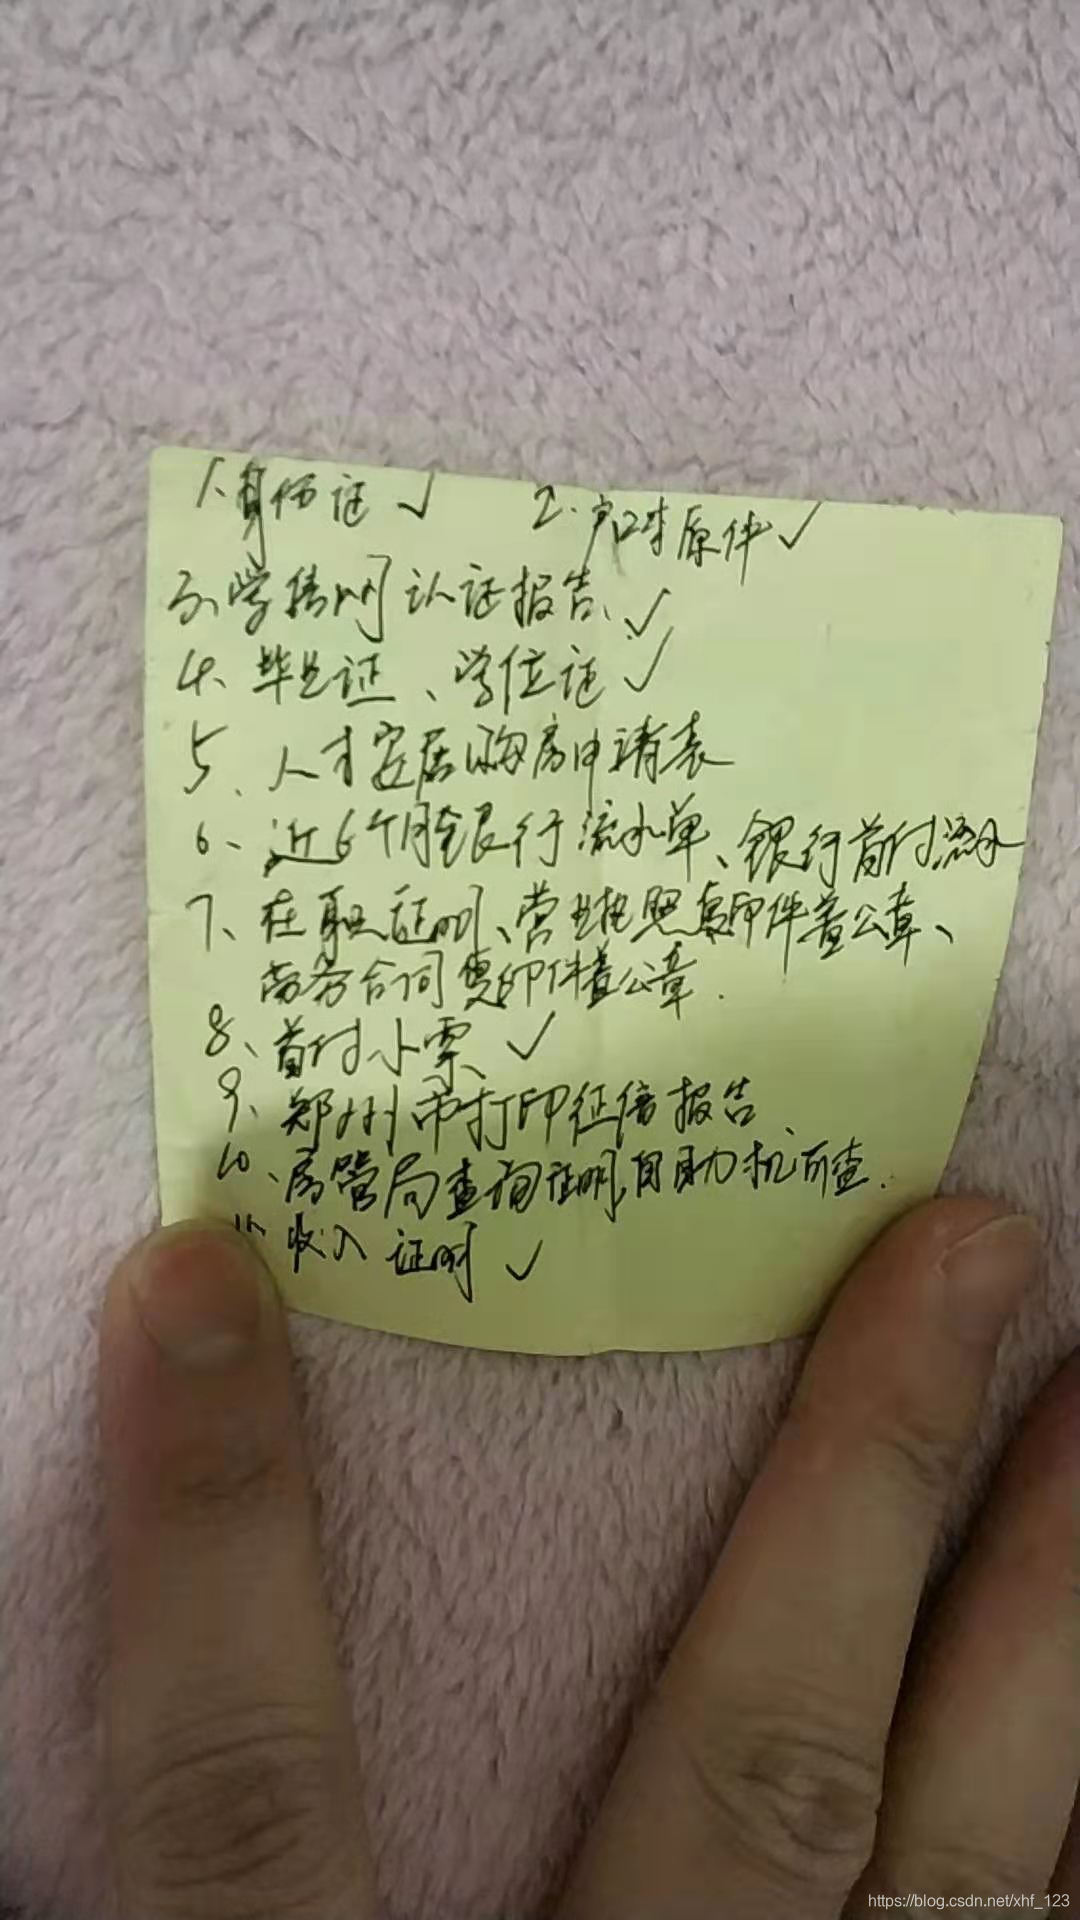 1、身份证 ✓ 2、户口本原件 ✓
3、学信网认证报告、✓
4、毕业证、学位证 ✓
5、人才安居购房申请表
6、近6个月银行流水单、银行首付流水
7、在职证明、营业执照复印件盖公章、
劳务合同复印件盖公章.
8、首付小票、✓
9、郑州市打印征信报告
10、房管局查询证明,自助机可查.
11、收入证明 ✓
https://blog.csdn.net/xhf_123